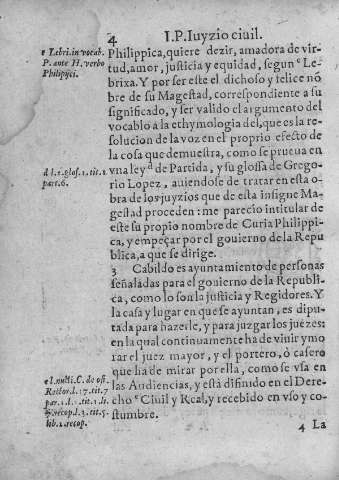 4 I.P. Iuyzio ciuil.
c Lebri. in vocab.
P. ante H. verbo
Philippici.
Philippica, quiere dezir, amadora de vir-
tud, amor, justicia y equidad, segun c Le-
brixa. Y por ser este el dichoso y felice nõ
bre de su Magestad, correspondiente a su
significado, y ser valido el argumento del
vocablo a la ethymologia del, que es la re-
solucion de la voz en el proprio efecto de
la cosa que demuestra, como se prueua en
d l.1. glos. 1. tit. 1
part. 6.
vna ley d de Partida, y su glossa de Grego-
rio Lopez, auiendose de tratar en esta o-
bra de los juyzios que de esta insigne Ma-
gestad proceden: me parecio intitular de
este su proprio nombre de Curia Philippi-
ca, y empeçar por el gouierno de la Repu
blica, a que se dirige.
3 Cabildo es ayuntamiento de personas
señaladas para el gouierno de la Republi-
ca, como lo son la justicia y Regidores. Y
la casa y lugar en que se ayuntan, es dipu-
tada para hazerle, y para juzgar los juezes:
en la qual continuamente ha de viuir y mo
rar el juez mayor, y el portero, ò casero
que ha de mirar por ella, como se vsa en
las Audiencias, y està difinido en el Dere-
cho e Ciuil y Real, y recebido en vso y co-
stumbre.
e l. nulli C. de offi.
Rector. l. 17. tit. 7
par. 1. l. 1. tit. 1. li.
recop. l. 3. tit. 5.
lib. 2. recop.
4 La